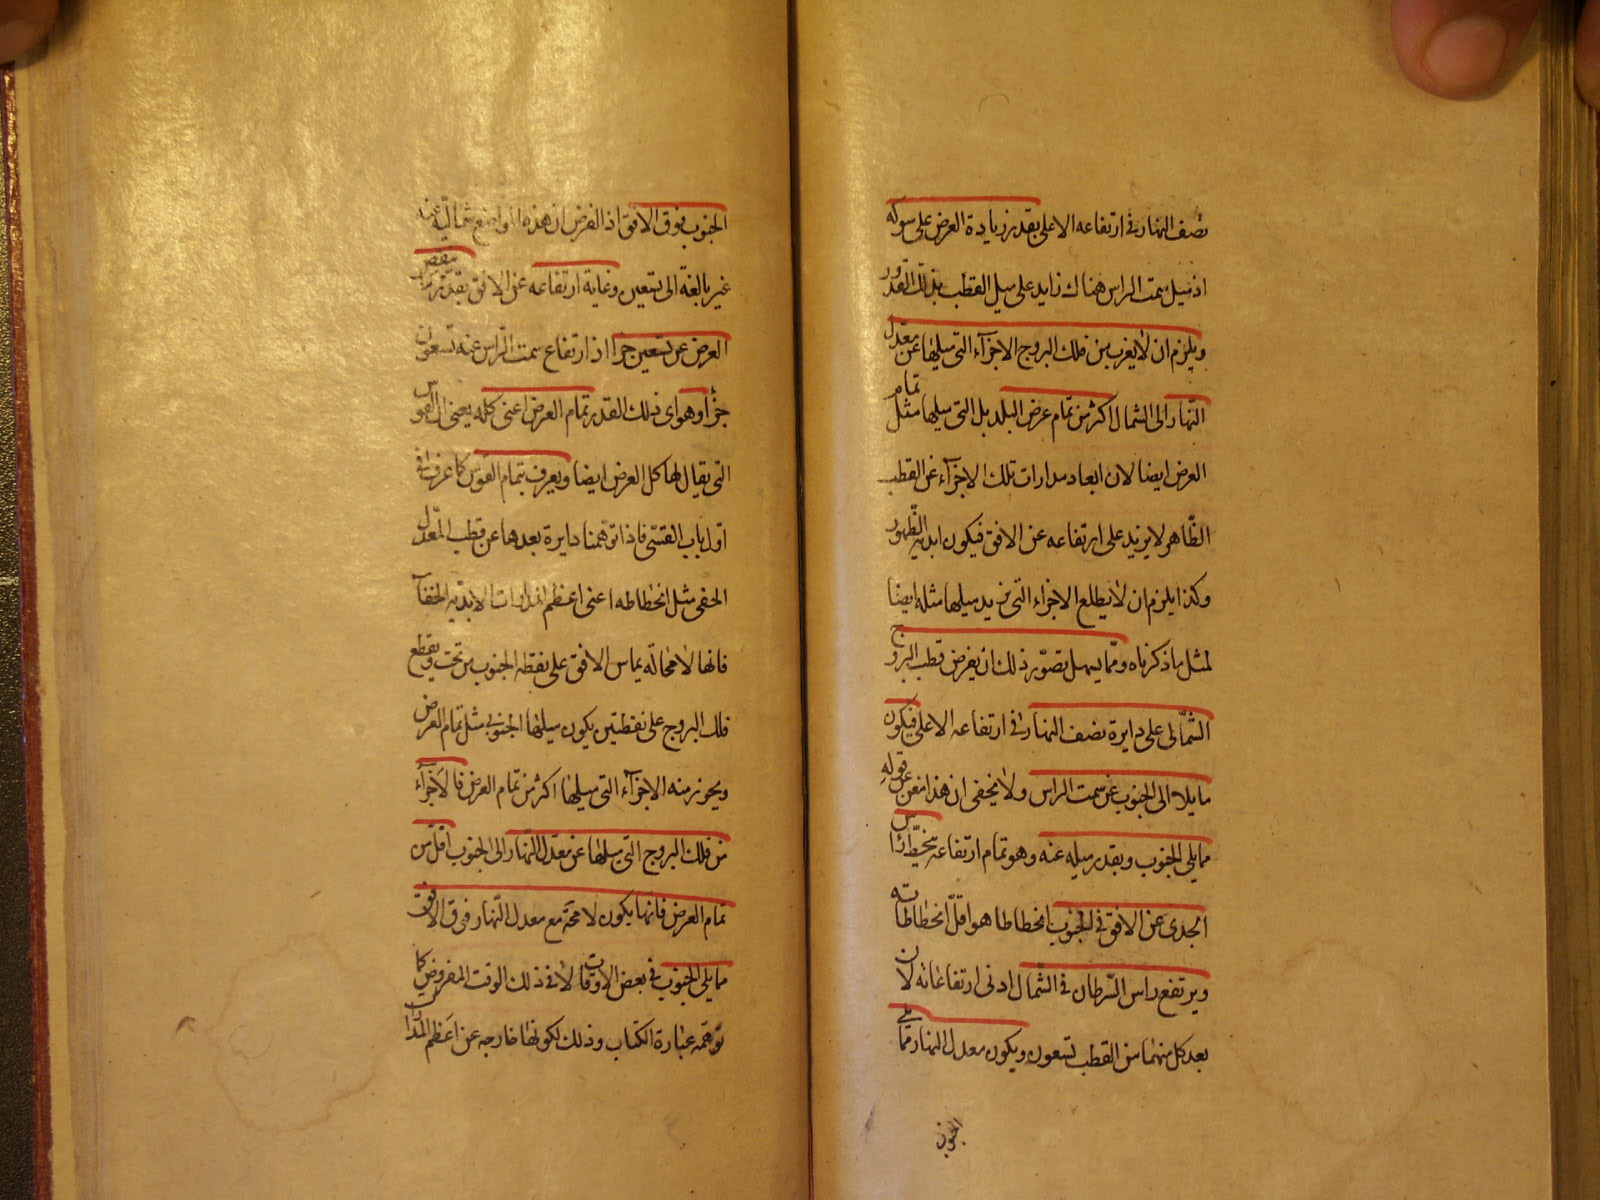 نصف النهار فى ارتفاعه الاعلى بقدر زيادة العرض على سوكه
اذ ميل سمت الراس هناك زايد على ميل القطب بذلك القدر و
ويلزم ان لا يغرب من فلك البروج الاجزآء التى ميلها عن معدل
النهار الى الشمال اكثر من تمام عرض البلد بل التى ميلها مثل تمام
العرض ايضا لان ابعاد مدارات تلك الاجزآء عن القطب
الظّاهر لا يزيد على ارتفاعه عن الافق فيكون ابدية الظّهور
وكذا يلزم ان لا يطلع الاجزاء التى تزيد ميلها مثله ايضا
لمثل ما ذكرناه وممّا يسهل تصوّر ذلك ان يفرض قطب البروج
الشّمالى على دايرة نصف النهار فى ارتفاعه الاعلى فيكون
مايلا الى الجنوب عن سمت الراس ولا يخفى ان هذا مغن عن قوله
مما يلى الجنوب وبقدر ميله عنه وهو تمام ارتفاعه ينحطّ راس
الجدى عن الافق فى الجنوب انحطاطا هو اقلّ انحطاطاته
ويرتفع راس السّرطان فى الشمال ادنى ارتفاعاته لان
بعد كل منهما من القطب تسعون ويكون معدل النهار ممّا يلى
الجنوب
الجنوب فوق الافق اذ الفرض ان هذه المواضع شماليّة عنه
غير بالغة الى تسعين وغاية ارتفاعه عن الافق بقدر ينقص
العرض عن تسعين جزأ اذ ارتفاع سمت الراس عنه تسعون
جزأ وهو اى ذلك القدر تمام العرض اعنى كله يعنى ان القوس
التى يقال لها كل العرض ايضا ويعرف بتمام القوس كما عرف فى
اول باب القسّى فاذا توهمنا دايرة بعدها عن قطب المعدّل
الخفى مثل انحطاطه اعنى اعظم المدارات الابدية الخفآ
فانها لا محالة يماس الافق على نقطة الجنوب من تحت ويقطع
فلك البروج على نقطتين يكون ميلها الجنوبى مثل تمام العرض
ويحوز منه الاجزآء التى ميلها اكثر من تمام العرض فالاجزآء
من فلك البروج التى ميلها عن معدل النّهار الى الجنوب اقلّ من
تمام العرض فانها يكون لا محة مع معدل النّهار فوق الافق
مما يلى الجنوب فى بعض الاوقات لا فى ذلك الوقت المفروض كما
توهّمه عبارة الكتاب وذلك لكونها خارجه عن اعظم المدارات